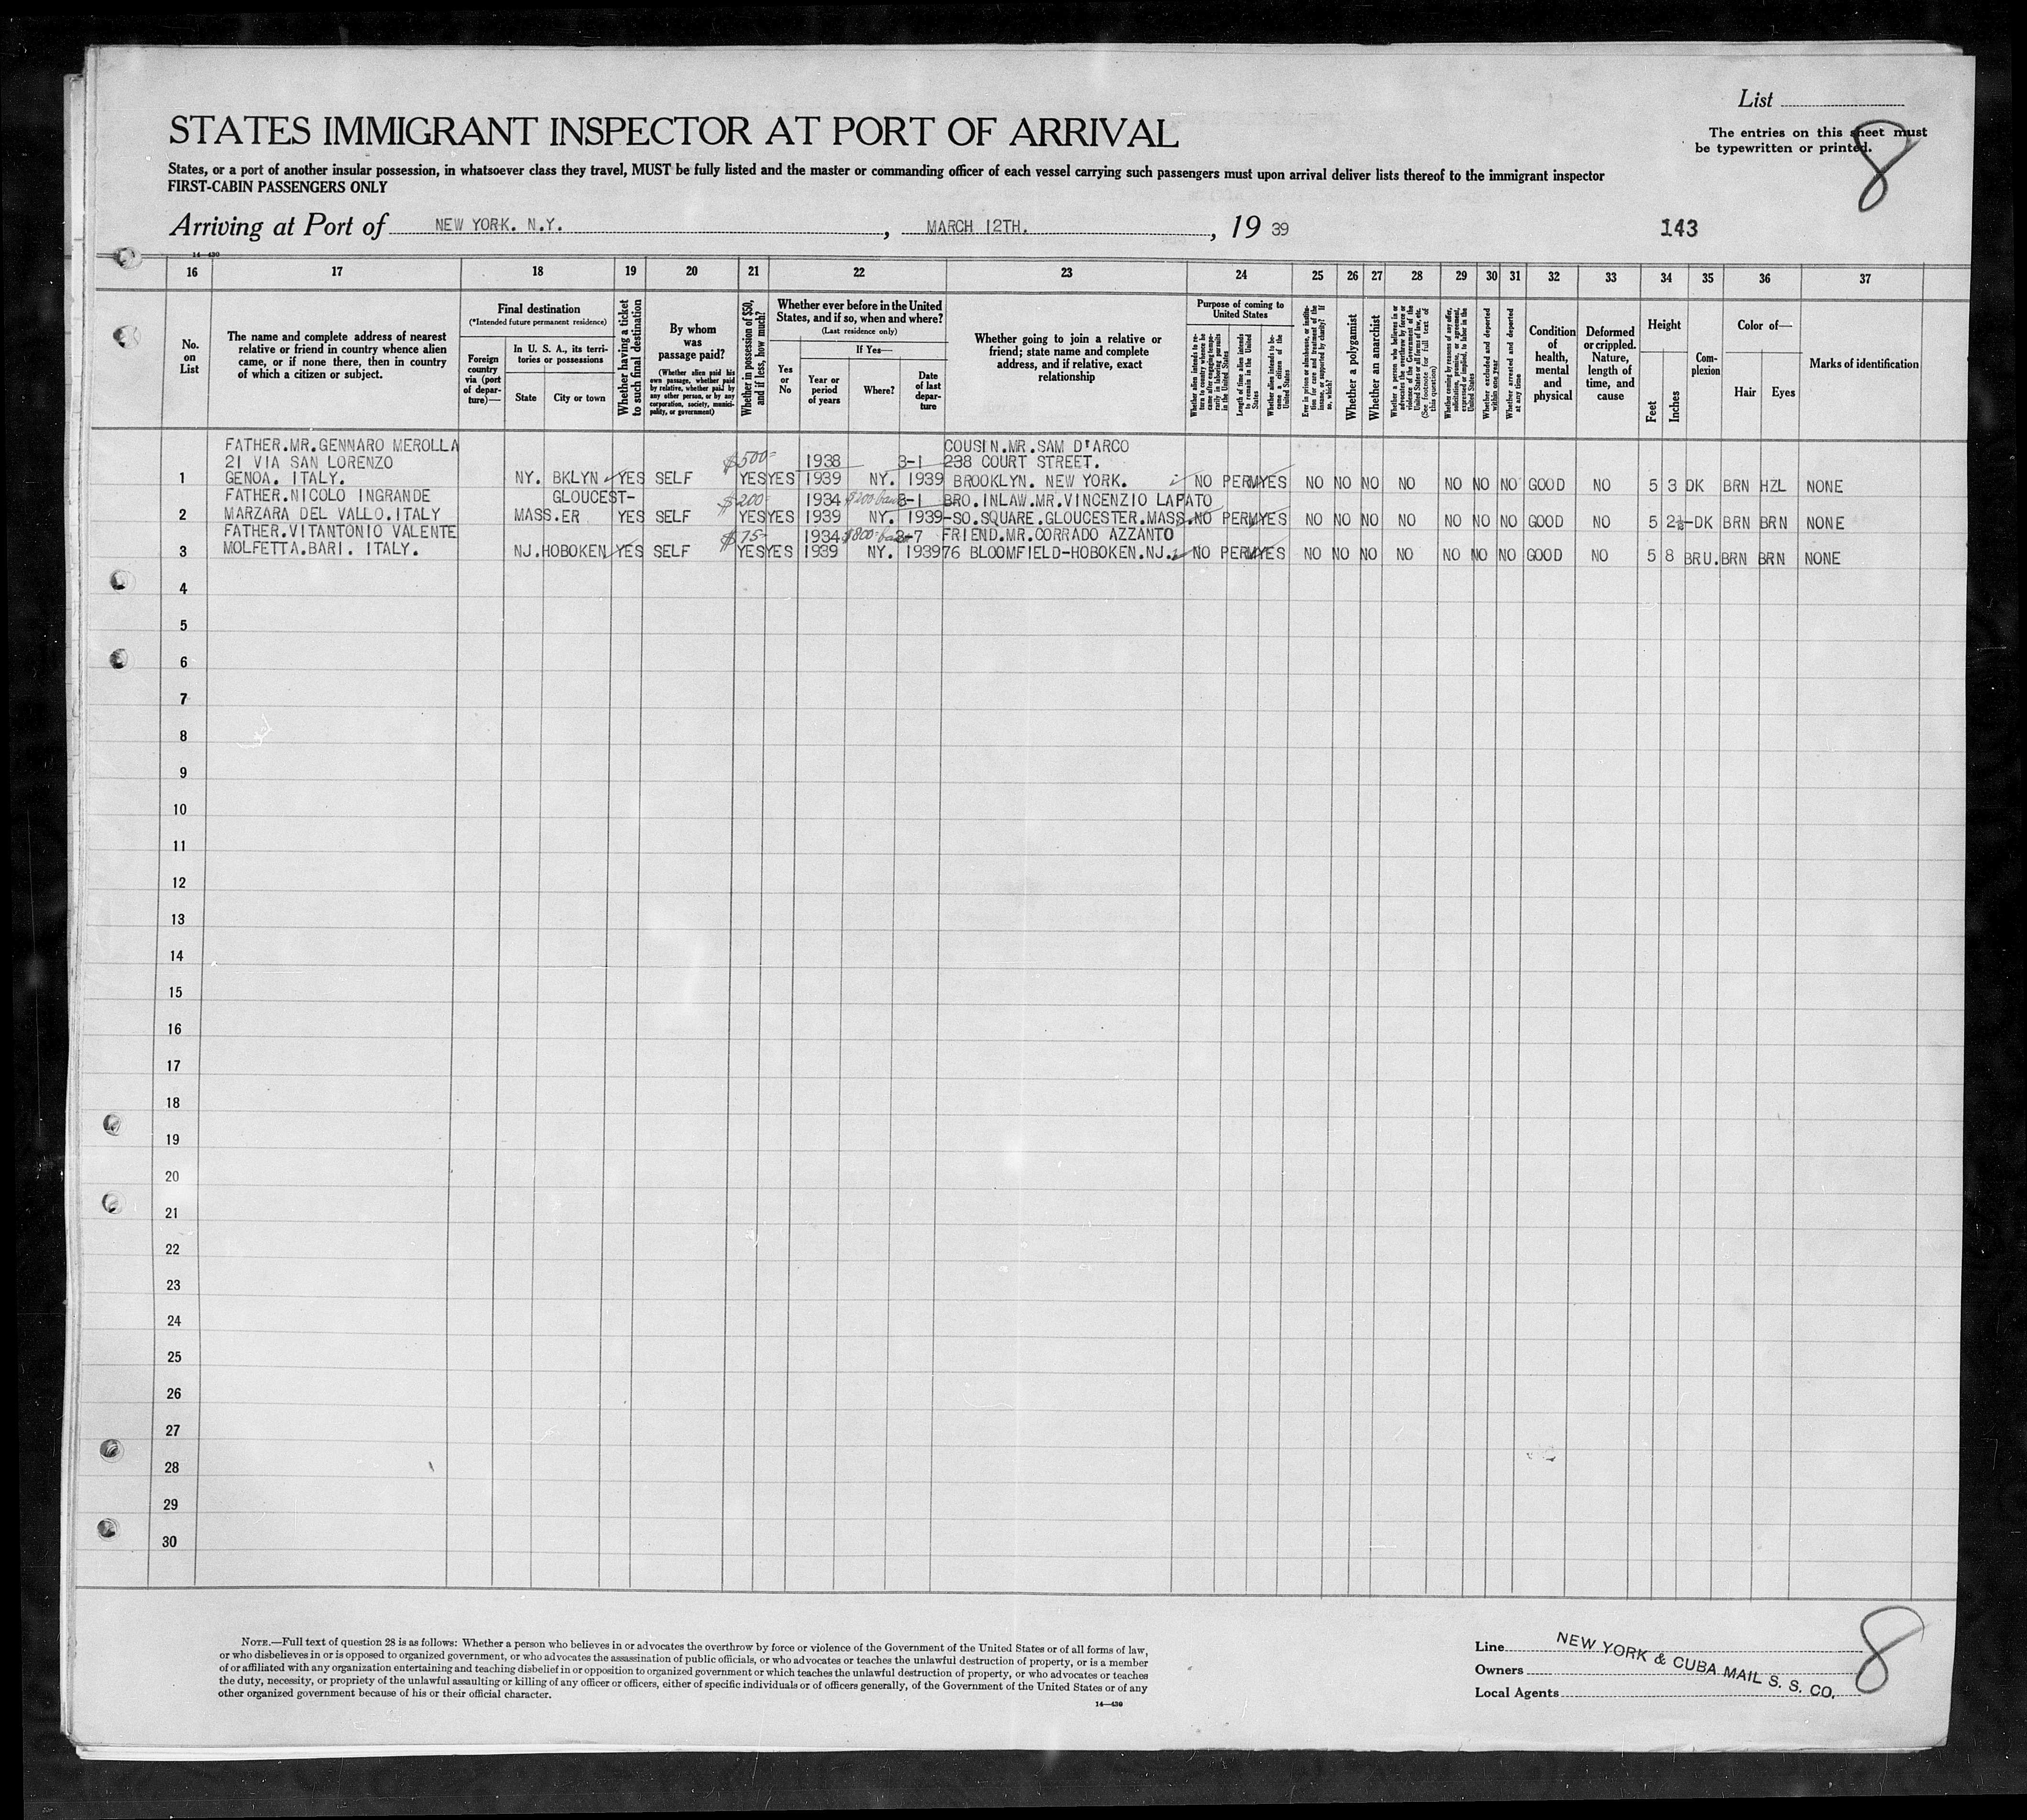 List
The entries on this sheet must
be typewritten or printed.
8
STATES IMMIGRANT INSPECTOR AT PORT OF ARRIVAL
States, or a port of another insular possession, in whatsoever class they travel, MUST be fully listed and the master or commanding officer of each vessel carrying such passengers must upon arrival deliver lists thereof to the immigrant inspector
FIRST-CABIN PASSENGERS ONLY
Arriving at Port of NEW YORK. N.Y. , MARCH 12TH. , 19 39
143
14—430
16 17 18 19 20 21 22 23 24 25 26 27 28 29 30 31 32 33 34 35 36 37
No. on List
The name and complete address of nearest
relative or friend in country whence alien
came, or if none there, then in country
of which a citizen or subject.
Final destination
(*Intended future permanent residence)
Foreign country via (port of departure)—
In U. S. A., its territories or possessions
State
City or town
Whether having a ticket to such final destination
By whom was passage paid?
(Whether alien paid his own passage, whether paid by relative, whether paid by any other person, or by any corporation, society, municipality, or government)
Whether in possession of $50, and if less, how much?
Whether ever before in the United States, and if so, when and where?
(Last residence only)
Yes or No
If Yes—
Year or period of years
Where?
Date of last departure
Whether going to join a relative or
friend; state name and complete
address, and if relative, exact
relationship
Purpose of coming to United States
Whether alien intends to return to country whence he came after engaging temporarily in laboring pursuits in the United States
Length of time alien intends to remain in the United States
Whether alien intends to become a citizen of the United States
Ever in prison or almshouse, or institution for care and treatment of the insane, or supported by charity? If so, which?
Whether a polygamist
Whether an anarchist
Whether a person who believes in or advocates the overthrow by force or violence of the Government of the United States or all forms of law, etc. (See footnote for full text of this question)
Whether coming by reasons of any offer, solicitation, promise, or agreement, expressed or implied, to labor in the United States
Whether excluded and deported within one year
Whether arrested and deported at any time
Condition of health, mental and physical
Deformed or crippled. Nature, length of time, and cause
Height
Feet
Inches
Complexion
Color of—
Hair
Eyes
Marks of identification
FATHER.MR.GENNARO MEROLLA COUSIN.MR.SAM D'ARCO
21 VIA SAN LORENZO $500- 1938 3-1 238 COURT STREET.
1 GENOA. ITALY. NY. BKLYN YES SELF YES YES 1939 NY. 1939 BROOKLYN. NEW YORK. NO PERM YES NO NO NO NO NO NO NO GOOD NO 5 3 DK BRN HZL NONE
FATHER.NICOLO INGRANDE GLOUCEST- $200- 1934 3-1 BRO.INLAW.MR.VINCENZIO LAPATO
2 MARZARA DEL VALLO.ITALY MASS.ER YES SELF YES YES 1939 NY. 1939-SO.SQUARE.GLOUCESTER.MASS. NO PERM YES NO NO NO NO NO NO NO GOOD NO 5 2½-DK BRN BRN NONE
FATHER.VITANTONIO VALENTE $75- 1934 3-7 FRIEND.MR.CORRADO AZZANTO
3 MOLFETTA.BARI. ITALY. NJ.HOBOKEN YES SELF YES YES 1939 NY. 1939 76 BLOOMFIELD-HOBOKEN.NJ. NO PERM YES NO NO NO NO NO NO NO GOOD NO 5 8 BRU. BRN BRN NONE
4
5
6
7
8
9
10
11
12
13
14
15
16
17
18
19
20
21
22
23
24
25
26
27
28
29
30
NOTE.—Full text of question 28 is as follows: Whether a person who believes in or advocates the overthrow by force or violence of the Government of the United States or of all forms of law,
or who disbelieves in or is opposed to organized government, or who advocates the assassination of public officials, or who advocates or teaches the unlawful destruction of property, or is a member
of or affiliated with any organization entertaining and teaching disbelief in or opposition to organized government or which teaches the unlawful destruction of property, or who advocates or teaches
the duty, necessity, or propriety of the unlawful assaulting or killing of any officer or officers, either of specific individuals or of officers generally, of the Government of the United States or of any
other organized government because of his or their official character.
14—430
Line
Owners
Local Agents
NEW YORK & CUBA MAIL S. S. CO.
8